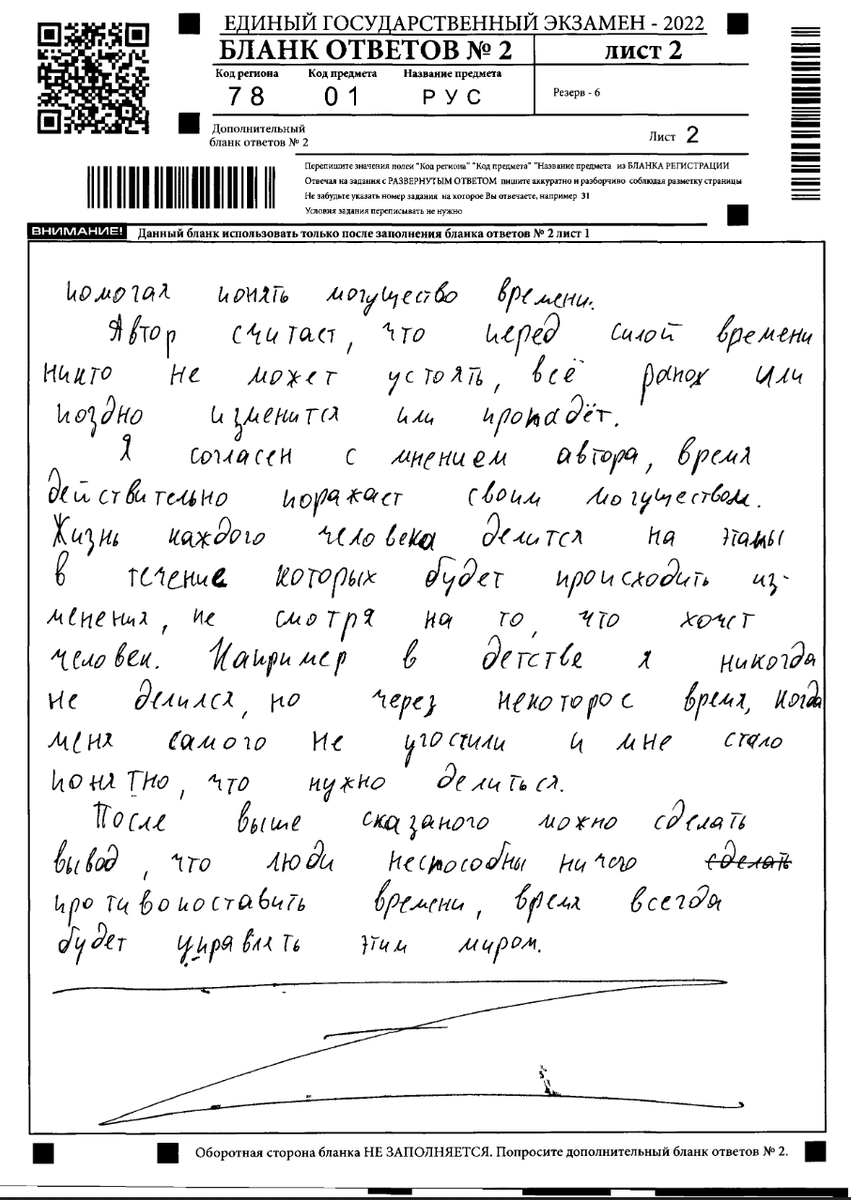 ЕДИНЫЙ ГОСУДАРСТВЕННЫЙ ЭКЗАМЕН - 2022
БЛАНК ОТВЕТОВ № 2 лист 2
Код региона Код предмета Название предмета
78 01 РУС Резерв - 6
Дополнительный
бланк ответов № 2 Лист 2
Перепишите значения полей "Код региона" "Код предмета" "Название предмета из БЛАНКА РЕГИСТРАЦИИ
Отвечая на задания с РАЗВЕРНУТЫМ ОТВЕТОМ пишите аккуратно и разборчиво соблюдая разметку страницы
Не забудьте указать номер задания на которое Вы отвечаете, например 31
Условия задания переписывать не нужно
ВНИМАНИЕ! Данный бланк использовать только после заполнения бланка ответов № 2 лист 1
помогая понять могущество времени.
Автор считает, что перед силой времени
никто не может устоять, всё рано или
поздно изменится или пропадёт.
Я согласен с мнением автора, время
действительно поражает своим могуществом.
Жизнь каждого человека делится на этапы
в течение которых будет происходить из-
менения, не смотря на то, что хочет
человек. Например в детстве я никогда
не делился, но через некоторое время, когда
меня самого не угостили и мне стало
понятно, что нужно делиться.
После выше сказаного можно сделать
вывод, что люди неспособны ничего сделать
противопоставить времени, время всегда
будет управлять этим миром.
Оборотная сторона бланка НЕ ЗАПОЛНЯЕТСЯ. Попросите дополнительный бланк ответов № 2.